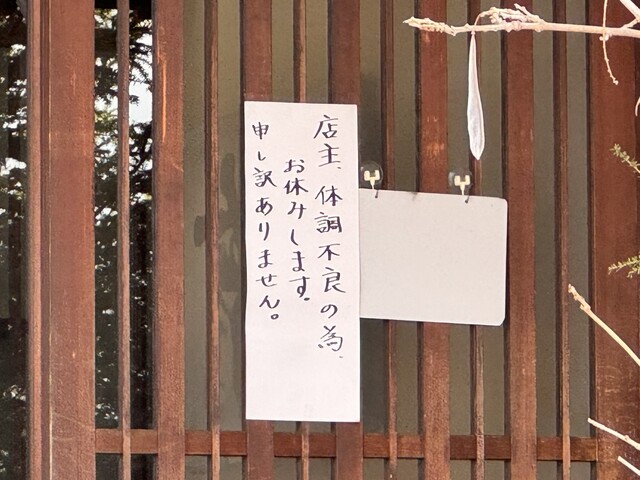 店主、体調不良の為、
お休みします。
申し訳ありません。